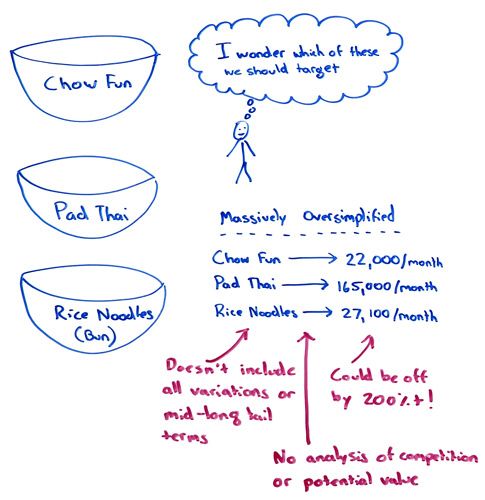 Chow Fun
I wonder which of these
we should target
Pad Thai
Rice Noodles
(Bun)
Massively Oversimplified
Chow Fun → 22,000/month
Pad Thai → 165,000/month
Rice Noodles → 27,100/month
Doesn't include
all variations or
mid-long tail
terms
No analysis of competition
or potential value
Could be off
by 200%+!